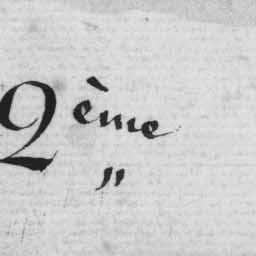 2ème
"